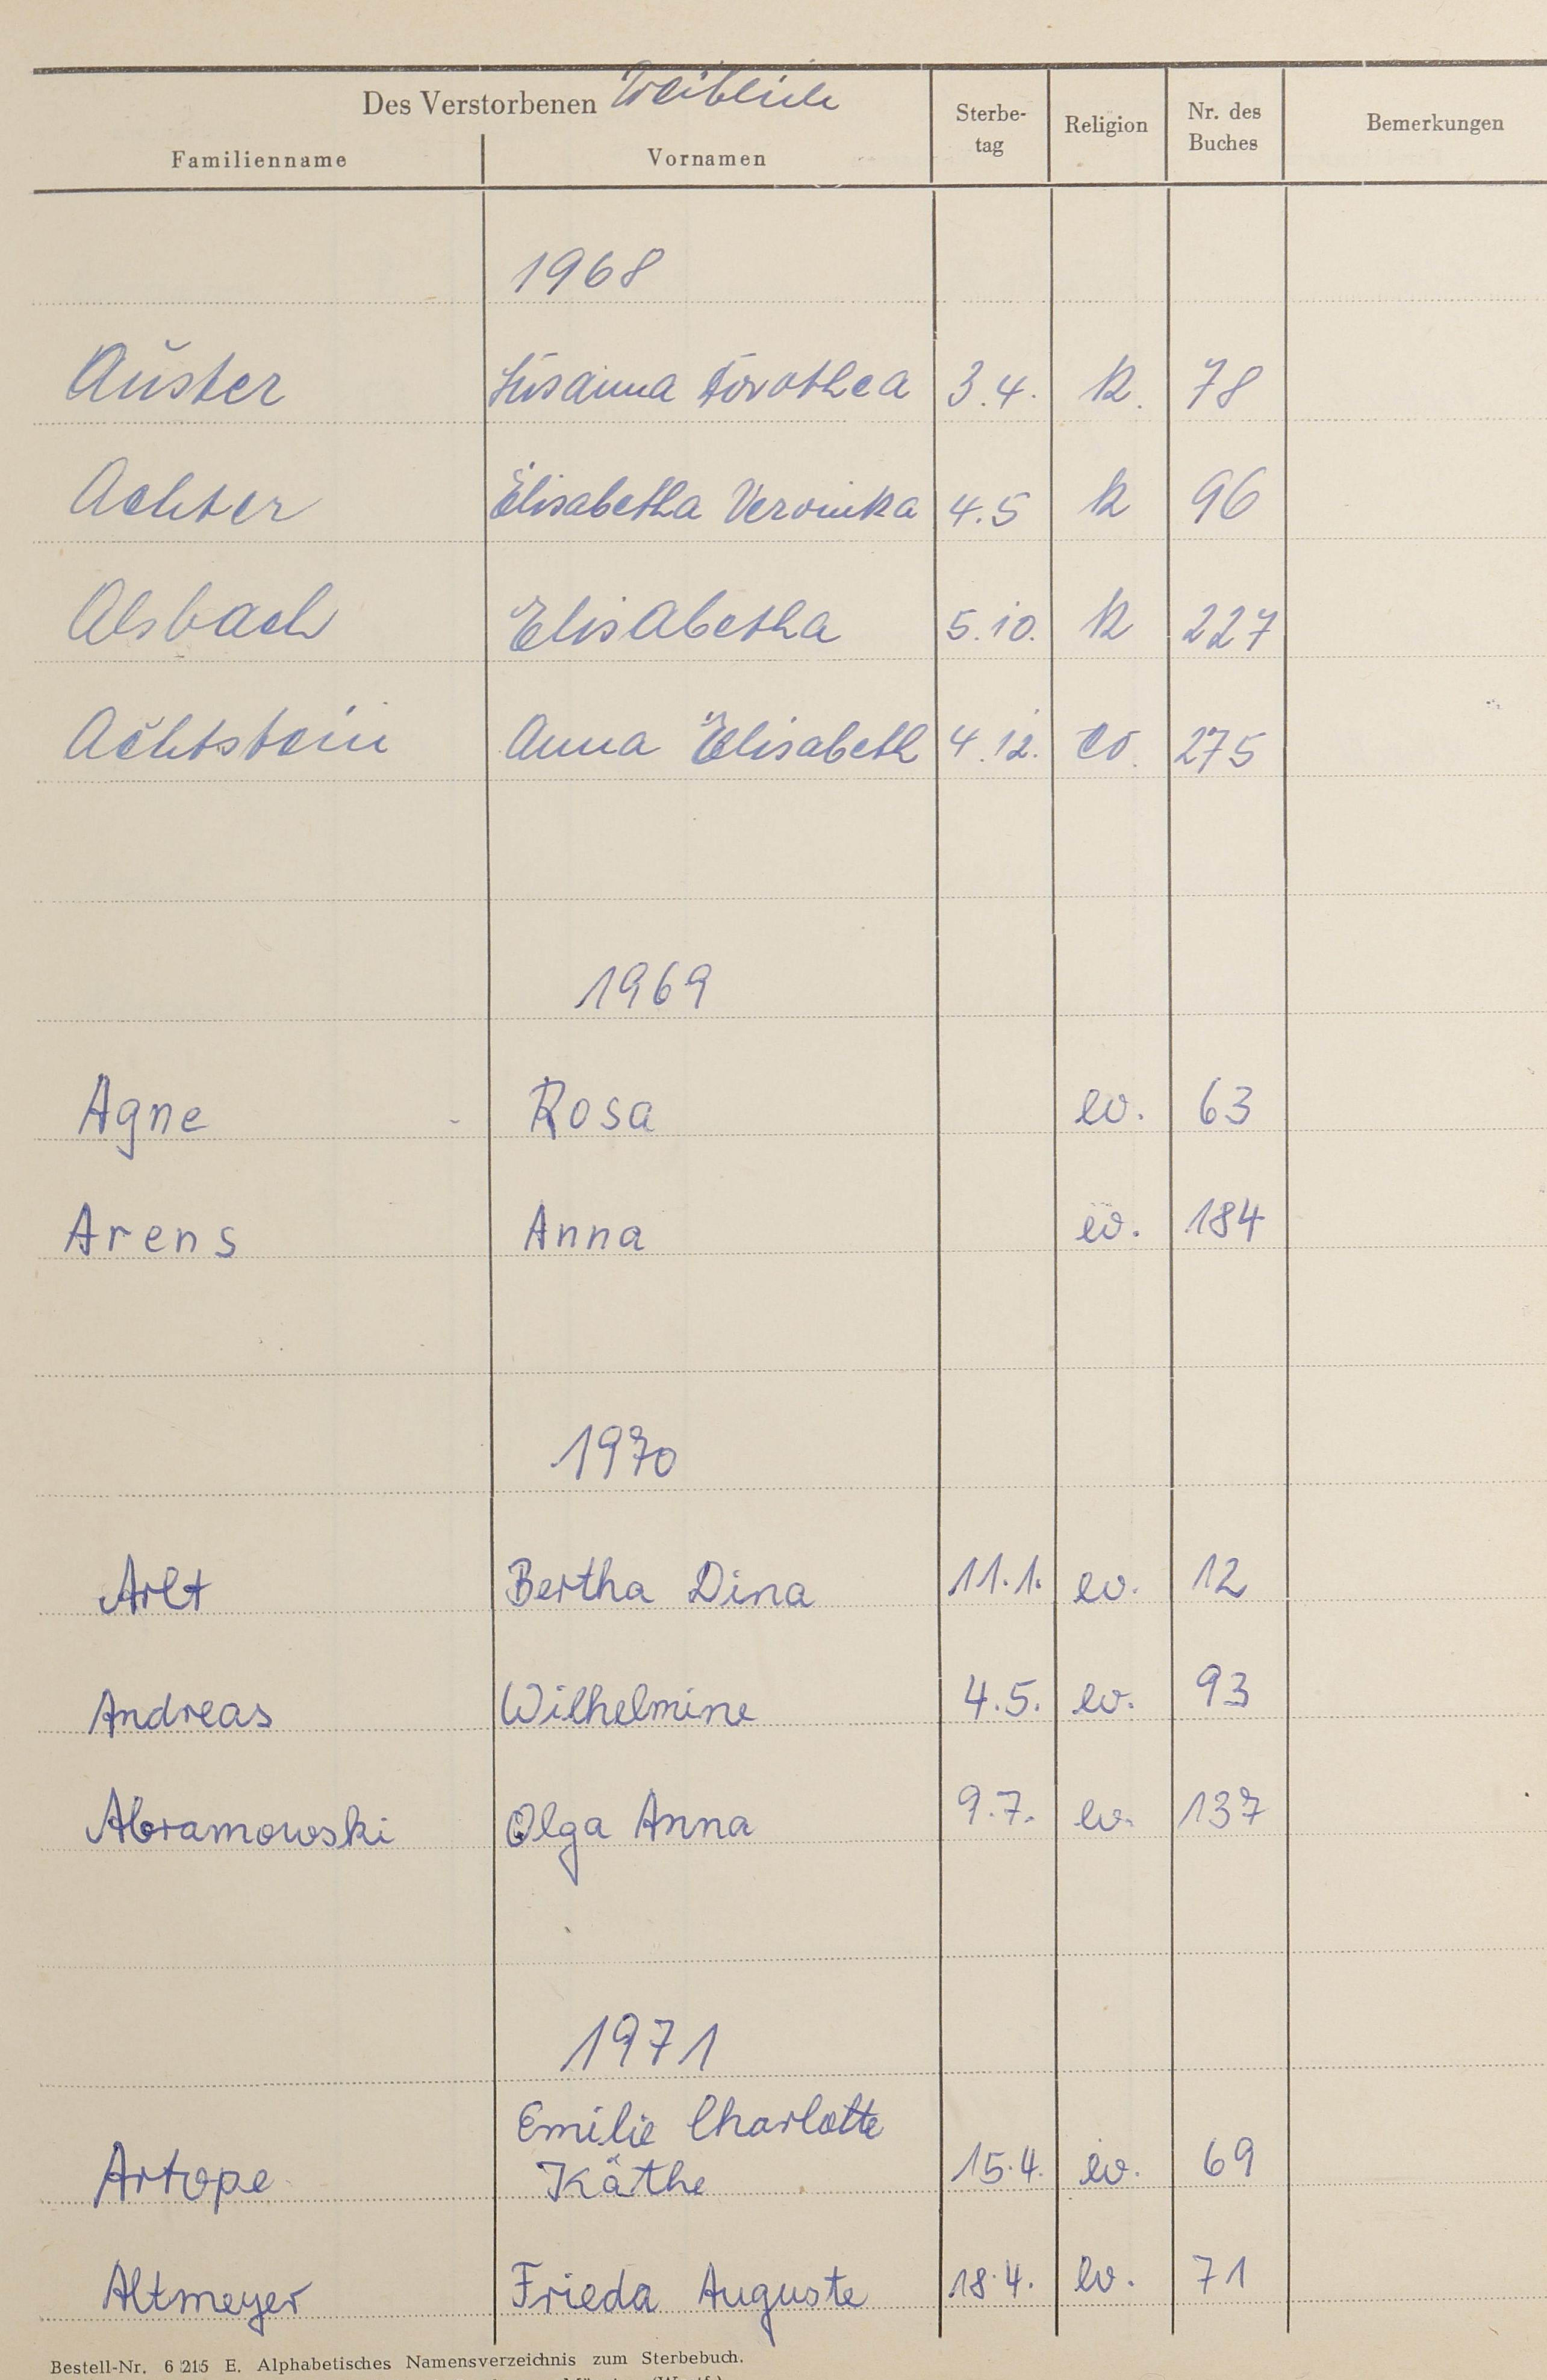 Des Verstorbenen Weibliche
Familienname Vornamen Sterbe- tag Religion Nr. des Buches Bemerkungen
1968
Auster Susanna Dorothea 3.4. k. 78
Achter Elisabetha Veronika 4.5 k 96
Alsbach Elisabetha 5.10. k 227
Achtstein Anna Elisabeth 4.12. ev. 275
1969
Agne Rosa ev. 63
Arens Anna ev. 184
1970
Arlt Bertha Dina 11.1. ev. 12
Andreas Wilhelmine 4.5. ev. 93
Abramowski Olga Anna 9.7. ev. 137
1971
Emilie Charlotte
Artope Käthe 15.4. ev. 69
Altmeyer Frieda Auguste 18.4. ev. 71
Bestell-Nr. 6 215 E. Alphabetisches Namensverzeichnis zum Sterbebuch.